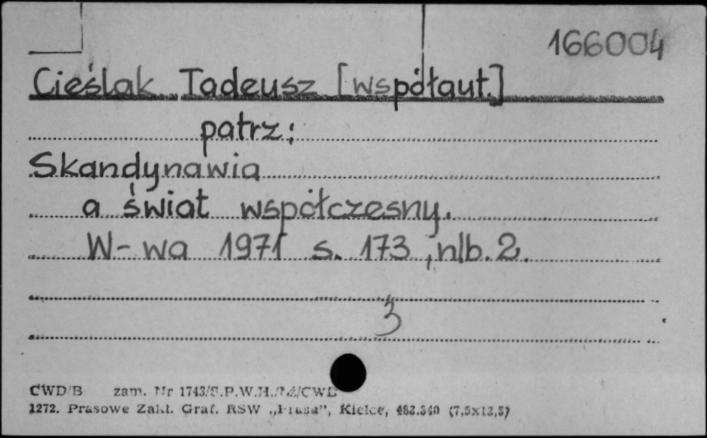 166004
Cieślak Tadeusz [współaut.]
patrz:
Skandynawia
a świat współczesny.
W-wa 1971 s. 173, nlb. 2.
3
CWD/B zam. Nr 1743/S.P.W.H./
1272. Prasowe Zakł. Graf. RSW „Prasa”, Kielce, (7,5x12,5)